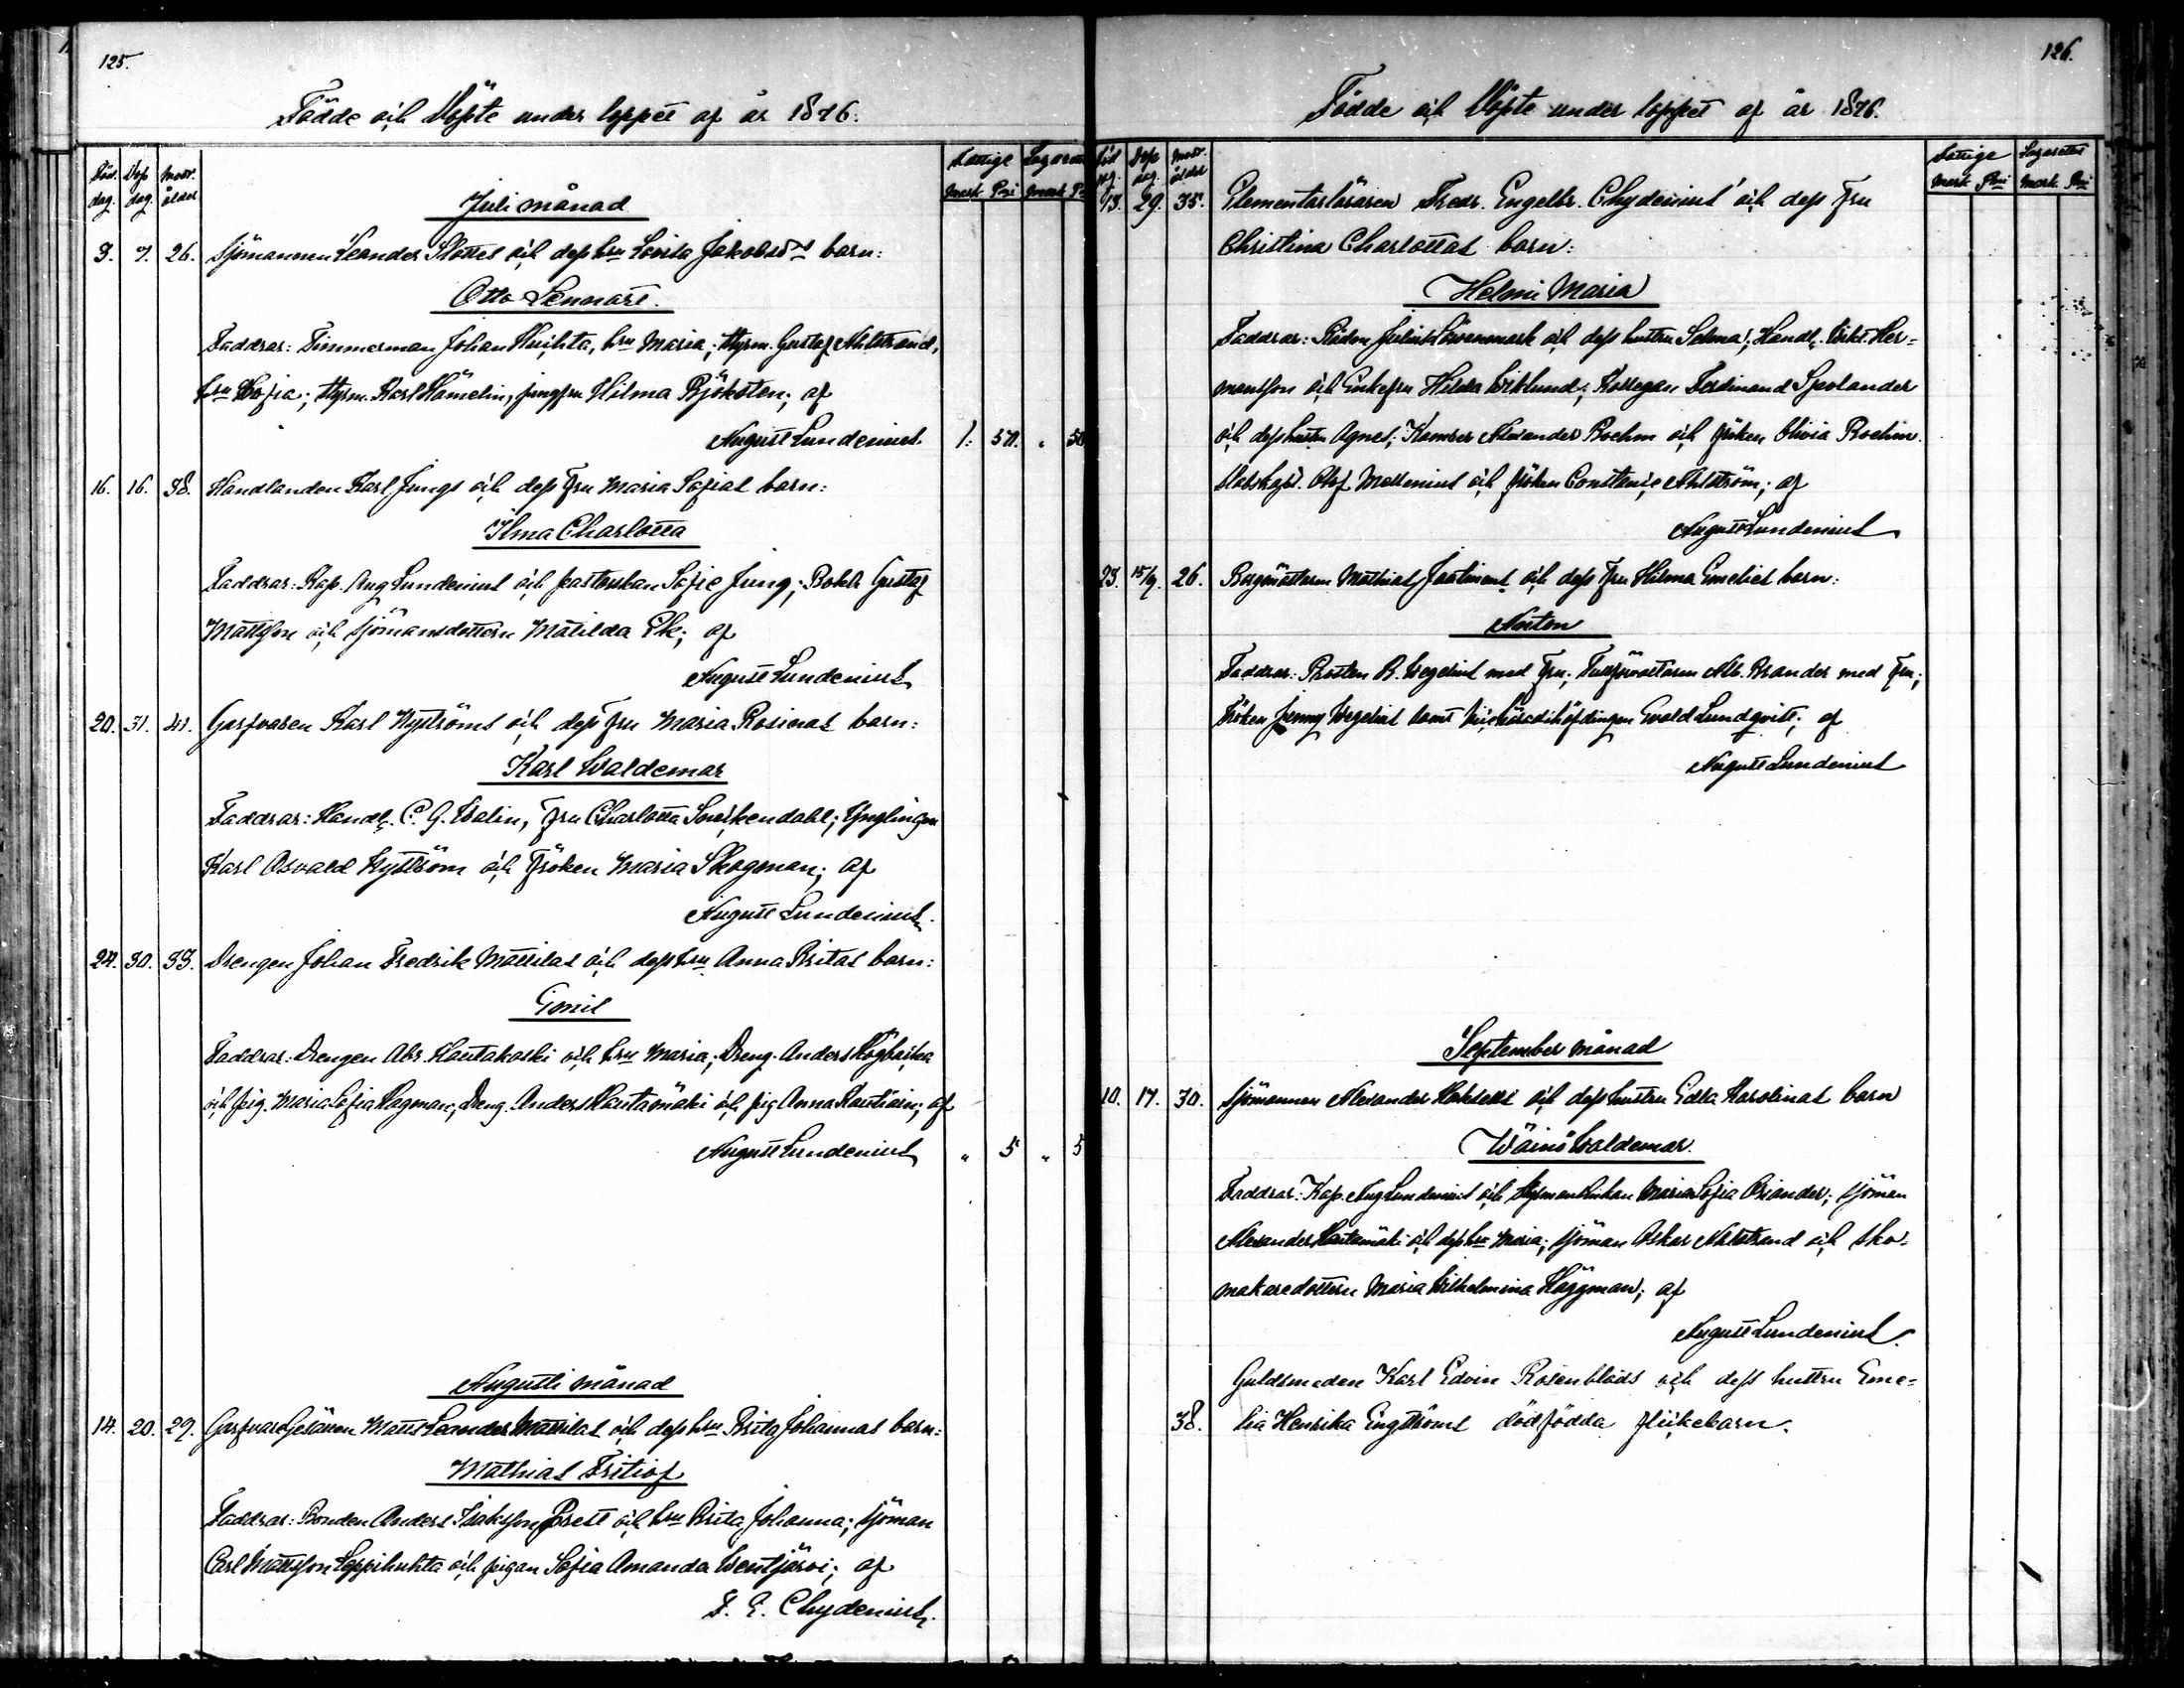 125.
Födde och Döpte under loppet af år 1876.
Föd. dag. Dop dag. Modr. ålder Fattige Mark Pni Lazarett Mark
Juli månad
3. 7. 26. Sjömannen Leander Slottes och dess hru Lovisa Jakobsds barn:
Otto Lennart.
Faddrar: Timmerman Johan Huhta, hru Maria; Styrm. Gustaf Ahlstrand,
hru Sofia; Styrm. Karl Hämelin, jungfru Hilma Björksten; af
August Lundenius. 1. 50. " 50
16. 16. 38. Handlanden Karl Jungs och dess Fru Maria Sofias barn:
Ilma Charlotta
Faddrar: Kap. Aug Lundenius och pastorskan Sofie Jung; Bokh Gustaf
Mattsson och sjömansdottern Matilda Ek; af
August Lundenius
20. 31. 41. Garfvaren Karl Nyströms och dess Fru Maria Rosinas barn:
Karl Waldemar
Faddrar: Handl. C. G. Walin, Fru Charlotta Sneckendahl; Ynglingen
Karl Osvald Nyström och Fröken Maria Skogman; af
August Lundenius.
24. 30. 33. Drengen Johan Fredrik Mattilas och dess hru Anna Britas barn:
Emil
Faddrar: Drengen Abr. Hautakoski och hru Maria; Dreng. Anders Högbacka
och pig. Maria Sofia Hagman; Dreng. Anders Hautamäki och pig Anna af
August Lundenius " 5 " 5
Augusti månad
14. 20. 29. Garfvare Gesällen Matts Leander Mattilas och dess hru Brita Johannas barn:
Mathias Fritiof
Faddrar: Bonden Anders Isaksson Prest och hru Brita Johanna; sjöman
Carl Mattsson Leppihuhta och pigan Sofia Amanda Wentjärvi; af
F. E. Chydenius.
126.
Födde och Döpte under loppet af år 1876.
Föd dag. Dop dag. Modr. ålder Fattige Mark Pni Lazarettet Mark Pni
13. 29. 35. Elementarläraren Fredr. Engelbr. Chydenius' och dess Fru
Christina Charlottas barn:
Helmi Maria
Faddrar: Julius Löwenmark och dess hustru Selma; Handl. Wikt. Her-
mansson och Enkefru Hilda Wiklund; Kollegan Ferdinand Sjoolander
och dess hustru Agnes; Alexander Boehm och fröken Olivia Boehm
Olof Mollenius och fröken Constance Ahlström; af
August Lundenius
23. 15/9. 26. Borgmästaren Mathias och dess Fru Hilma Emelies barn:
Anton
Faddrar: Prosten R. Wegelius med Fru; Tullförvaltaren Alb. Brander med Fru;
Fröken Jenny Wegelius samt Vicehäradshöfdingen Evald Lundqvist; af
August Lundenius
September månad
10. 17. 30. Sjömannen Alexander och dess hustru Edla Karolinas barn
Wäinö Waldemar.
Faddrar: Kap. Aug Lundenius och Maria Sofia Osiander; sjöman
Alexander Hautamäki och dess hru Maria; sjöman Oskar Ahlstrand och sko-
makaredottern Maria Wilhelmina Häggman; af
August Lundenius.
Guldsmeden Karl Edvin Rosenblads och dess hustru Eme-
38. lia Henrika Engströms dödfödda flickebarn.